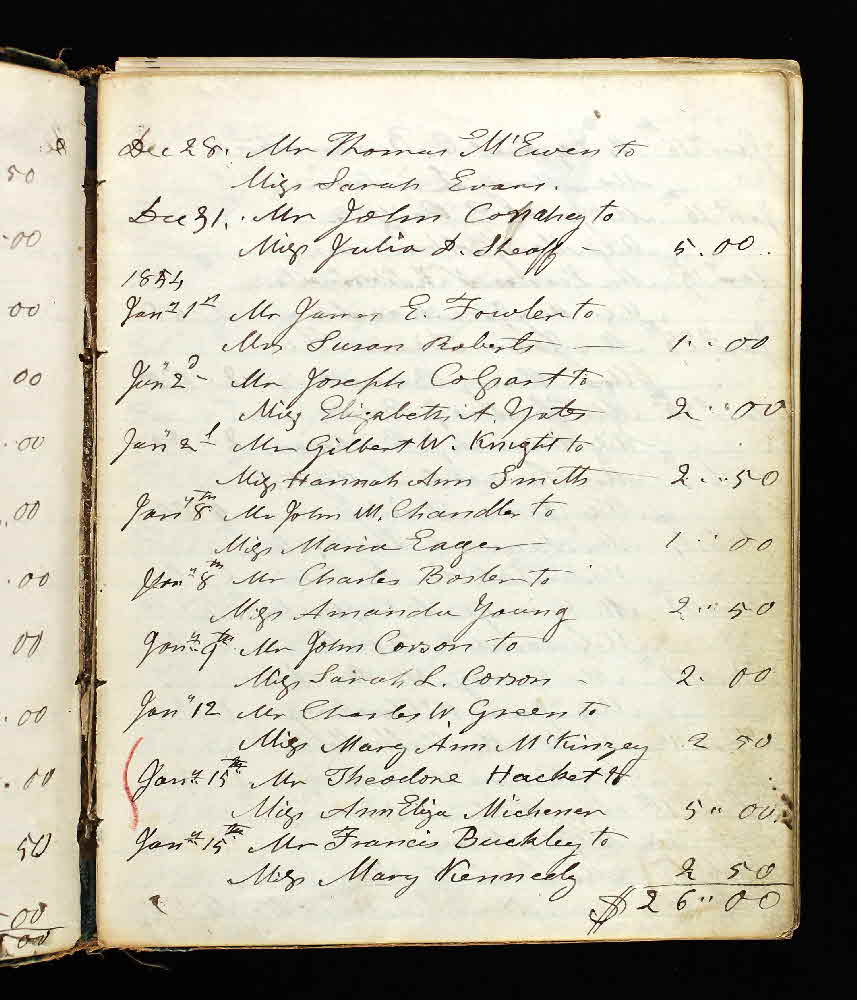 Dec 28. Mr Thomas McEwen to
Miss Sarah Evans.
Dec 31. Mr John Conahey to
Miss Julia D. Sheaff – 5.00
1854
Jany 1st Mr James E. Fowler to
Mrs Susan Roberts — 1..00
Jany 2d – Mr Joseph Colgart to
Miss Elizabeth A. Yates 2..00
Jany 2d Mr Gilbert W. Knight to
Miss Hannah Ann Smith — 2..50
Jany 8th Mr John M. Chandler to
Miss Maria Eager — 1..00
Jany 8th Mr Charles Bosler to
Miss Amanda Young 2..50
Jany 9th Mr John Corson to
Miss Sarah L. Corson – 2.00
Jany 12 Mr Charles W Green to
Miss Mary Ann McKinzey 2 50
Jany 15th Mr Theodore Hacket to
Miss Ann Eliza Michener 5..00
Jany 15th Mr Francis Buckley to
Miss Mary Kennedy 2 50
$26..00
50
.00
00
00
.00
.00
.00
00
.00
.00
50
00
00